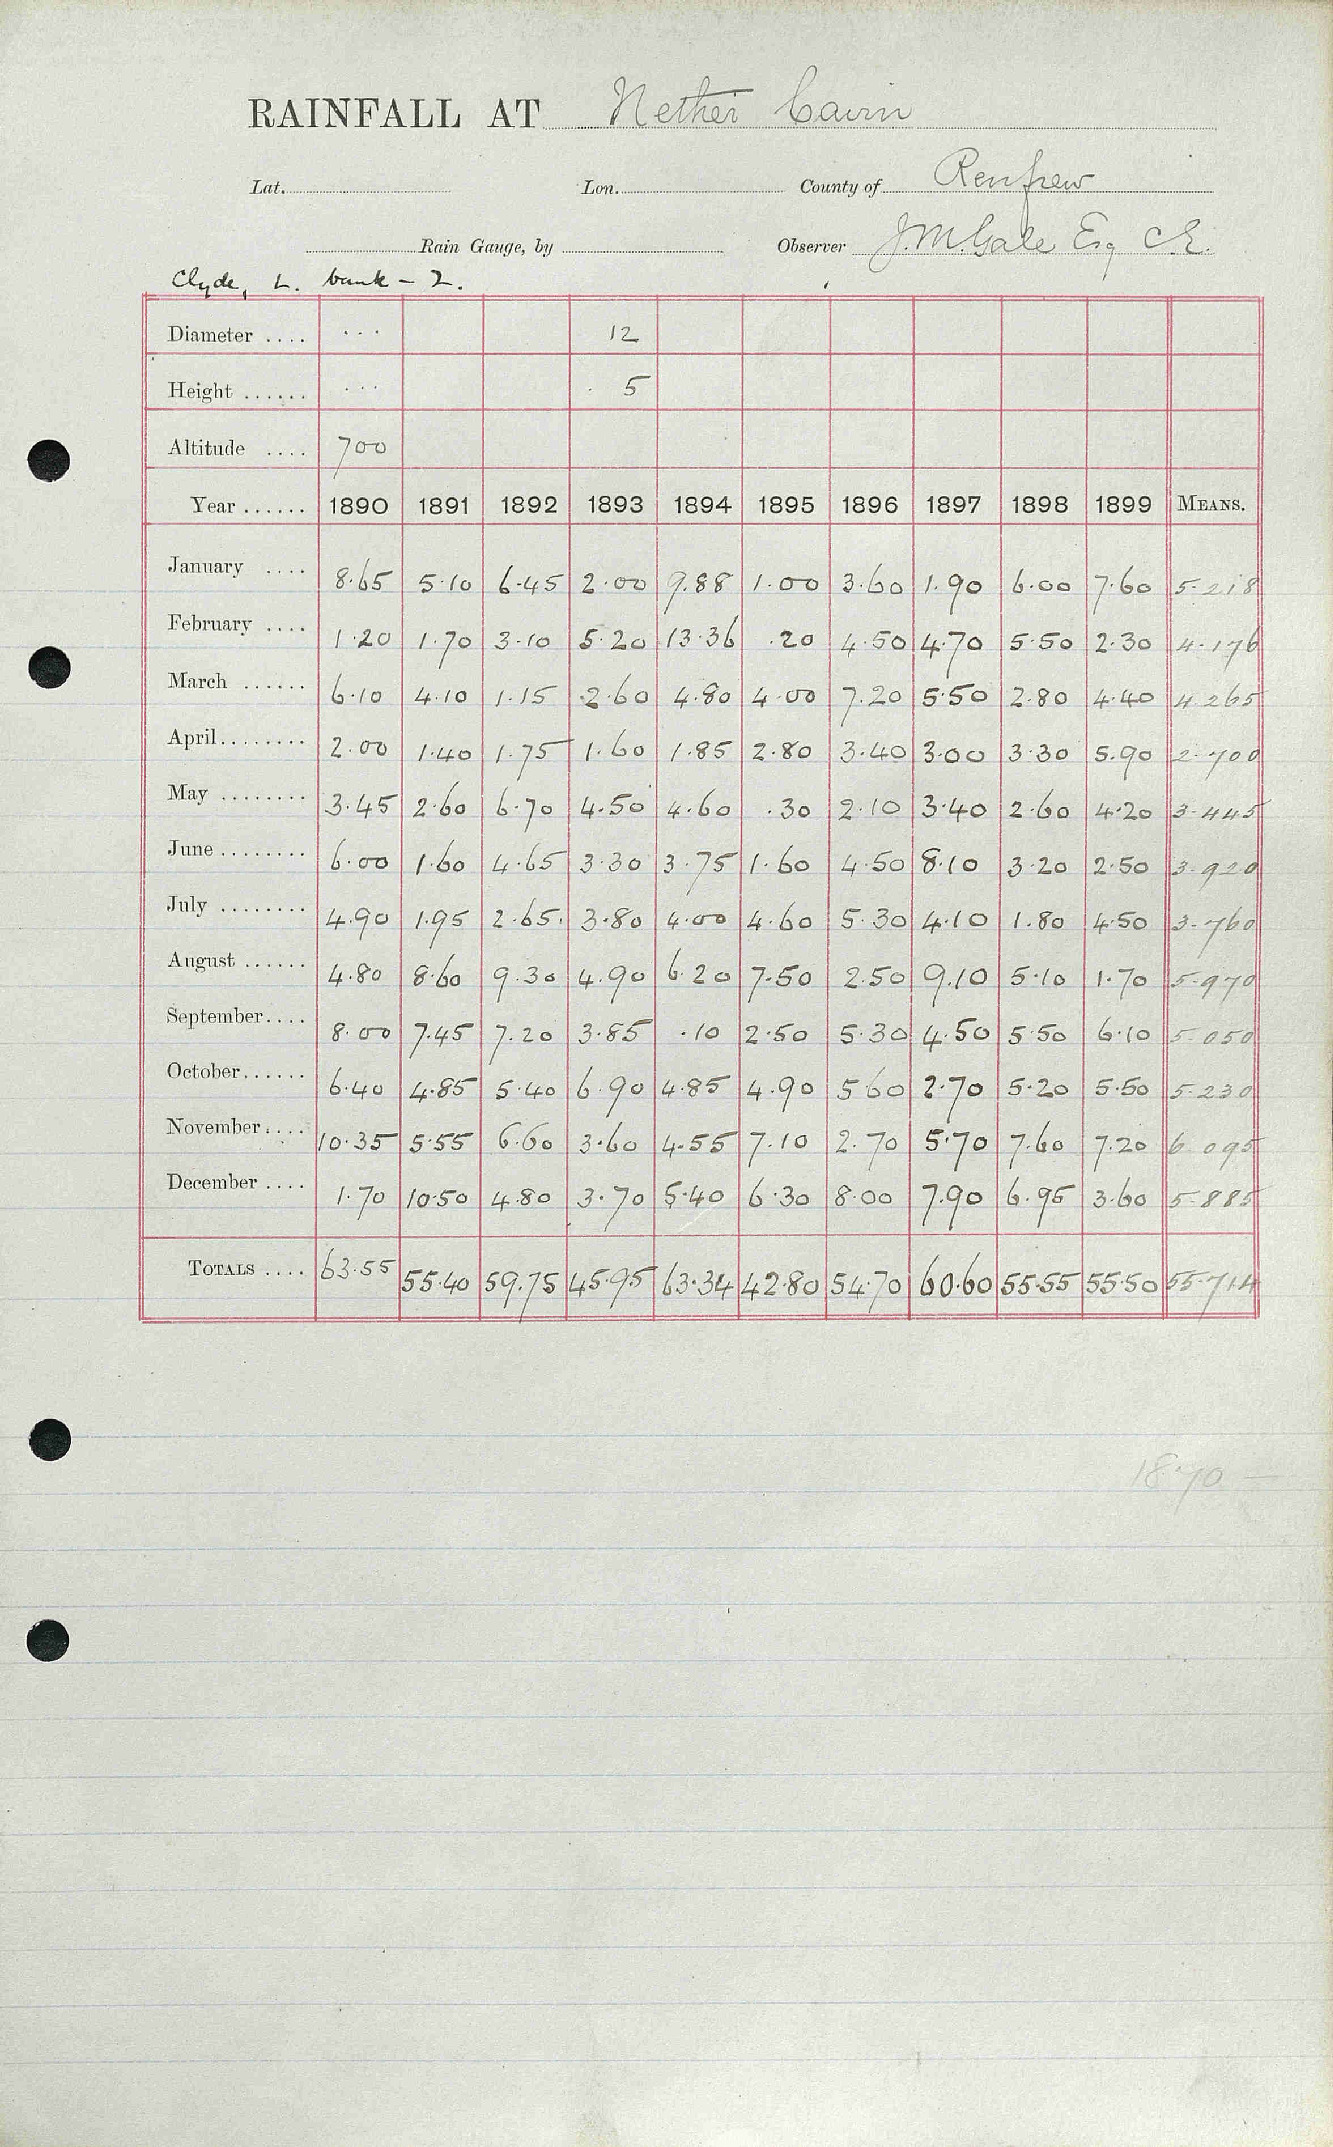 RAINFALL AT Nether Cairn
Lat. Lon. County of Renfrew
Rain Gauge, by Observer J. M. Gale Esq C.E.
Clyde, L. bank - 2.
Diameter .... ... 12
Height ...... ... 5
Altitude .... 700
Year ...... 1890 1891 1892 1893 1894 1895 1896 1897 1898 1899 MEANS.
January .... 8.65 5.10 6.45 2.00 9.88 1.00 3.60 1.90 6.00 7.60 5.218
February .... 1.20 1.70 3.10 5.20 13.36 .20 4.50 4.70 5.50 2.30 4.176
March ...... 6.10 4.10 1.15 2.60 4.80 4.00 7.20 5.50 2.80 4.40 4.265
April........ 2.00 1.40 1.75 1.60 1.85 2.80 3.40 3.00 3.30 5.90 2.700
May ........ 3.45 2.60 6.70 4.50 4.60 .30 2.10 3.40 2.60 4.20 3.445
June ........ 6.00 1.60 4.65 3.30 3.75 1.60 4.50 8.10 3.20 2.50 3.920
July ........ 4.90 1.95 2.65 3.80 4.00 4.60 5.30 4.10 1.80 4.50 3.760
August ...... 4.80 8.60 9.30 4.90 6.20 7.50 2.50 9.10 5.10 1.70 5.970
September.... 8.00 7.45 7.20 3.85 .10 2.50 5.30 4.50 5.50 6.10 5.050
October...... 6.40 4.85 5.40 6.90 4.85 4.90 5.60 2.70 5.20 5.50 5.230
November.... 10.35 5.55 6.60 3.60 4.55 7.10 2.70 5.70 7.60 7.20 6.095
December .... 1.70 10.50 4.80 3.70 5.40 6.30 8.00 7.90 6.95 3.60 5.885
TOTALS .... 63.55 55.40 59.75 45.95 63.34 42.80 54.70 60.60 55.55 55.50 55.714
1870 —